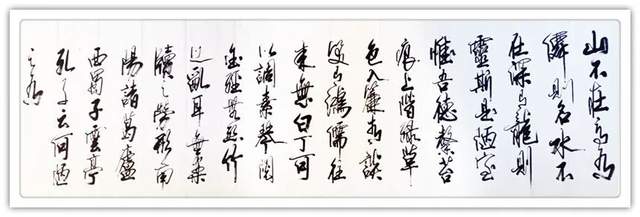 山不在高有
僊則名水不
在深有龍則
靈斯是陋室
惟吾德馨苔
痕上階綠草
色入簾青談
笑有鴻儒往
來無白丁可
以調素琴閱
金經無絲竹
之亂耳無案
牘之勞形南
陽諸葛廬
西蜀子雲亭
孔子云何陋
之有